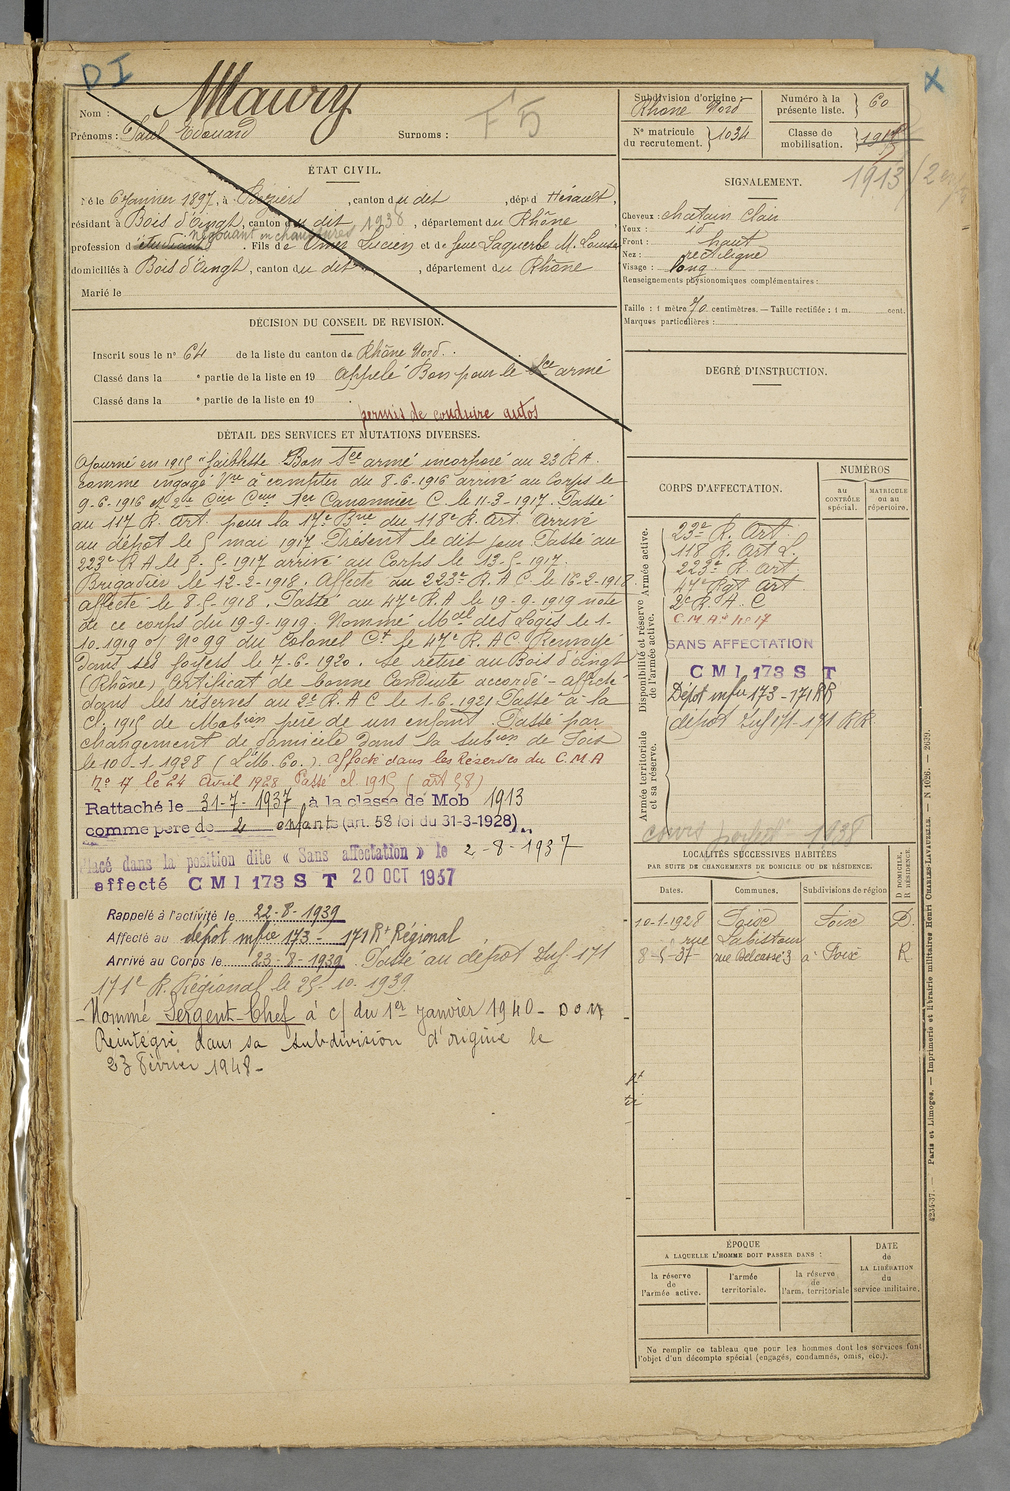 DI
X
Nom : Maury
Prénoms : Paul Edouard
Surnoms :
F5
Subdivision d'origine :
Rhône Nord
Nº matricule du recrutement. } 1034
Numéro à la présente liste. } 60
Classe de mobilisation. }
1913
ÉTAT CIVIL.
Né le 6 Janvier 1897, à Beziers, canton du dit, dépt d Hérault,
résidant à Bois d'Oingt, canton du dit 1938, département du Rhône
négociant en chaussures
profession d étudiant. Fils de Omer Lucien et de feue Laquerbe M. Louise
domiciliés à Bois d'Oingt, canton du dit, département du Rhône
Marié le
DÉCISION DU CONSEIL DE REVISION.
Inscrit sous le nº 64 de la liste du canton de Rhône Nord.
Classé dans la e partie de la liste en 19 Appelé Bon pour le Sce armé
Classé dans la e partie de la liste en 19 .
permis de conduire autos
DÉTAIL DES SERVICES ET MUTATIONS DIVERSES.
Ajourné en 1915 "faiblesse. Bon Sce armé incorporé au 23 R A.
comme engagé Vre à compter du 8-6-1916 arrivé au Corps le
9-6-1916 et 2e Cier Ceur 1er Canonnier C. le 11-3-1917. Passé
au 117 R. Art. pour la 17e Bie du 118e R. Art. Arrivé
au dépôt le 5 mai 1917. Présent le dit jour. Passé au
223e R A le 5-5-1917 arrivé au Corps le 13-5-1917.
Brigadier le 12-2-1918. Affecté au 223e R. A C le 16-2-1918.
affecté le 8-5-1918. Passé au 47e R.A le 19-9-1919 noté
de ce corps du 19-9-1919. Nommé Mal des Logis le 1-
10-1919 o/ Nº 99 du Colonel Ct le 47e R. A C. Renvoyé
dans ses foyers le 7-6-1920. Se retire au Bois d'Oingt
(Rhône) Certificat de bonne Conduite accordé - Affecté
dans les réserves au 2e R. A C le 1-6-1921 Passé à la
Cl. 1915 de Mobion père de un enfant. Passé par
changement de domicile dans la subion de Foix
le 10-1-1928 (L.M. Co.) Affecté dans les Réserves du C.M.A
nº 17 le 24 Avril 1928 Passé cl 1915 (art 58)
Rattaché le 31-7-1937 à la classe de Mob 1913
comme père de 2 enfants (art. 58 loi du 31-3-1928).
placé dans la position dite « Sans affectation » le 2-8-1937
affecté CMI 173 S T 20 OCT 1937
Rappelé à l'activité le 22-8-1939
Affecté au dépôt infie 173 - 171 Rt Régional
Arrivé au Corps le 23-8-1939. Passé au dépôt Inf. 171
171e R. Régional le 25.10.1939
Nommé Sergent-Chef à c/ du 1er janvier 1940 -
Réintégré dans sa subdivision d'origine le
23 Février 1948 -
SIGNALEMENT.
Cheveux : chatain clair
Yeux : id
Front : haut
Nez : rectiligne
Visage : long
Renseignements physionomiques complémentaires :
Taille : 1 mètre 70 centimètres. — Taille rectifiée : 1 m. cent.
Marques particulières :
DEGRÉ D'INSTRUCTION.
CORPS D'AFFECTATION.
NUMÉROS
au CONTRÔLE spécial.
MATRICULE ou au répertoire.
Armée active.
Disponibilité et réserve de l'armée active.
Armée territoriale et sa réserve.
23e R. Art.
118 R. Art L.
223e R. Art.
47e Rgt Art.
2e R. A. C
C. M. A. nº 17
SANS AFFECTATION
CMI 173 S T
Dépôt infie 173-171 RR
dépôt Inf 171-171 RR
1938
LOCALITÉS SUCCESSIVES HABITÉES
PAR SUITE DE CHANGEMENTS DE DOMICILE OU DE RÉSIDENCE.
Dates. Communes. Subdivisions de région
D DOMICILE, R RÉSIDENCE
10-1-1928 Foix Foix D.
rue Labistour
8-5-37- rue Delcassé 3 à Foix R.
ÉPOQUE
A LAQUELLE L'HOMME DOIT PASSER DANS :
la réserve de l'armée active.
l'armée territoriale.
la réserve de l'arm. territoriale
DATE de LA LIBÉRATION du service militaire.
Ne remplir ce tableau que pour les hommes dont les services font
l'objet d'un décompte spécial (engagés, condamnés, omis, etc.).
4234-37. — Paris et Limoges. — Imprimerie et librairie militaires Henri CHARLES-LAVAUZELLE. — N 1026. — 2639.